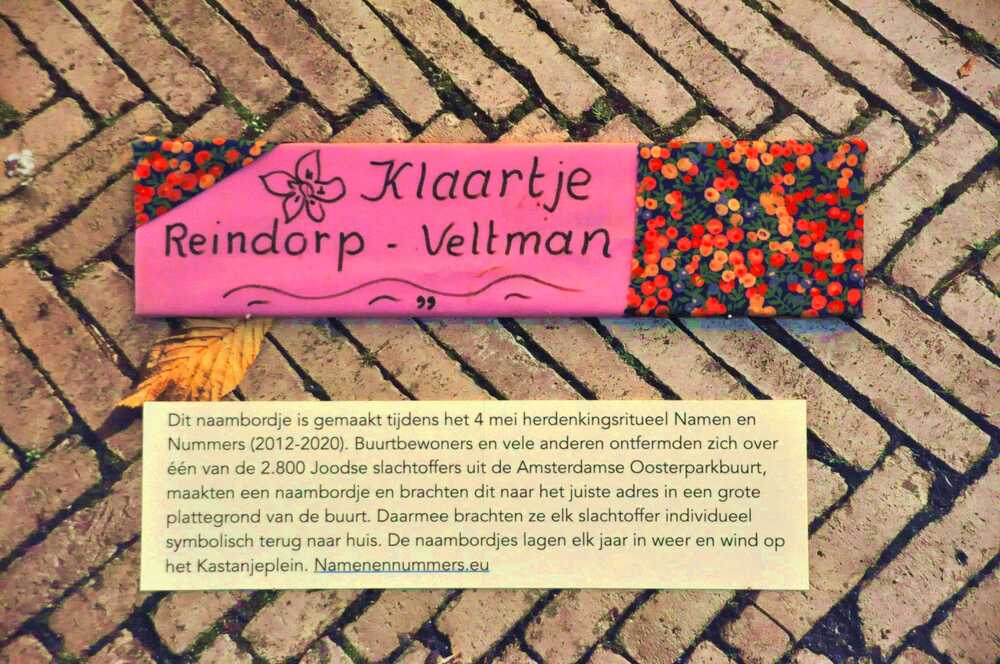 Klaartje
Reindorp - Veltman
Dit naambordje is gemaakt tijdens het 4 mei herdenkingsritueel Namen en
Nummers (2012-2020). Buurtbewoners en vele anderen ontfermden zich over
één van de 2.800 Joodse slachtoffers uit de Amsterdamse Oosterparkbuurt,
maakten een naambordje en brachten dit naar het juiste adres in een grote
plattegrond van de buurt. Daarmee brachten ze elk slachtoffer individueel
symbolisch terug naar huis. De naambordjes lagen elk jaar in weer en wind op
het Kastanjeplein. Namenennummers.eu